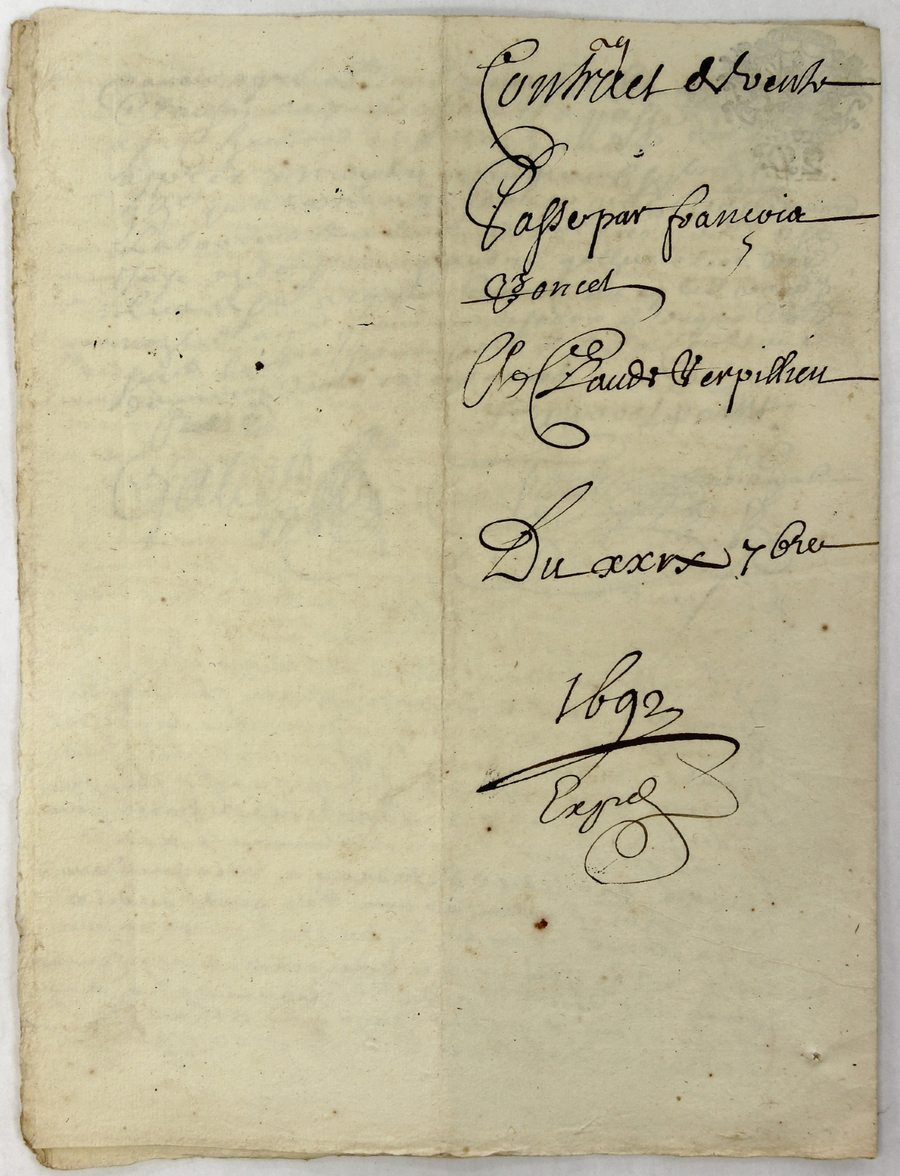 Contract de vente
Passe par françois
Poncet
Claude Verpillieu
Du xxix 7bre
1692
Expié